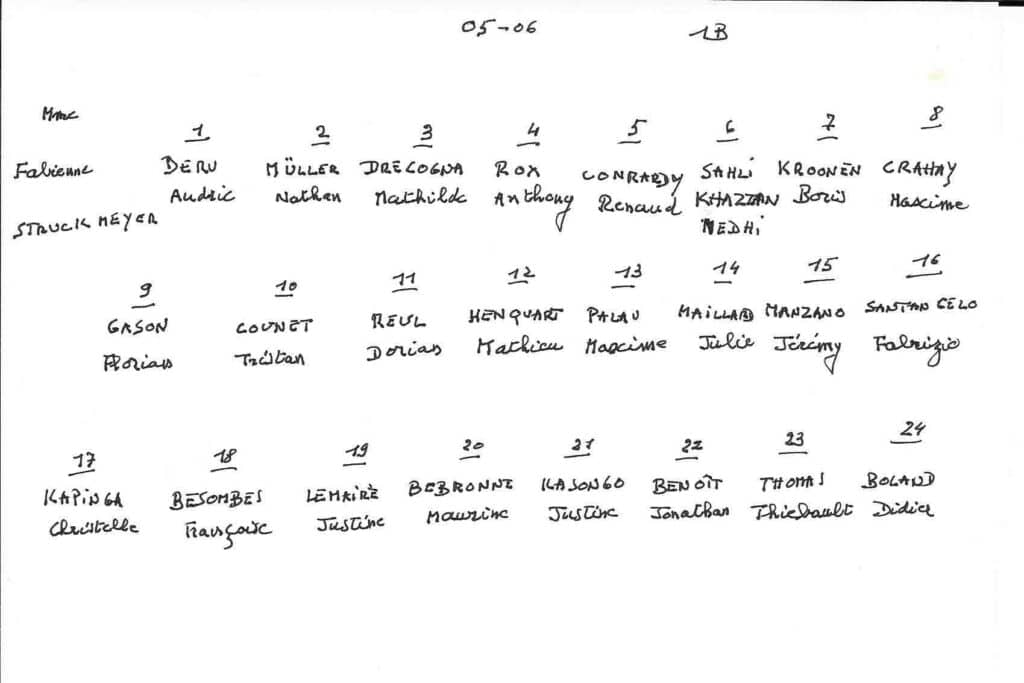 05-06 1B
Mme
1 2 3 4 5 6 7 8
Fabienne DERU MÜLLER DRECOGNA ROX CONRARDY SAHLI KROONEN CRAHAY
Audric Nathan Mathilde Anthony Renaud KHAZZAN Boris Maxime
STRUCKMEYER NEDHI
9 10 11 12 13 14 15 16
GASON COUNET REUL HENQUART PALAU MAILLARD MANZANO SANTANGELO
Florian Tristan Dorian Mathieu Maxime Julie Jérémy Fabrizio
17 18 19 20 21 22 23 24
KAPINGA BESOMBES LEMAIRE BEBRONNE KASONGO BENOÎT THOMAS BOLAND
Christelle Françoise Justine Maurine Justine Jonathan Thiebault Didier